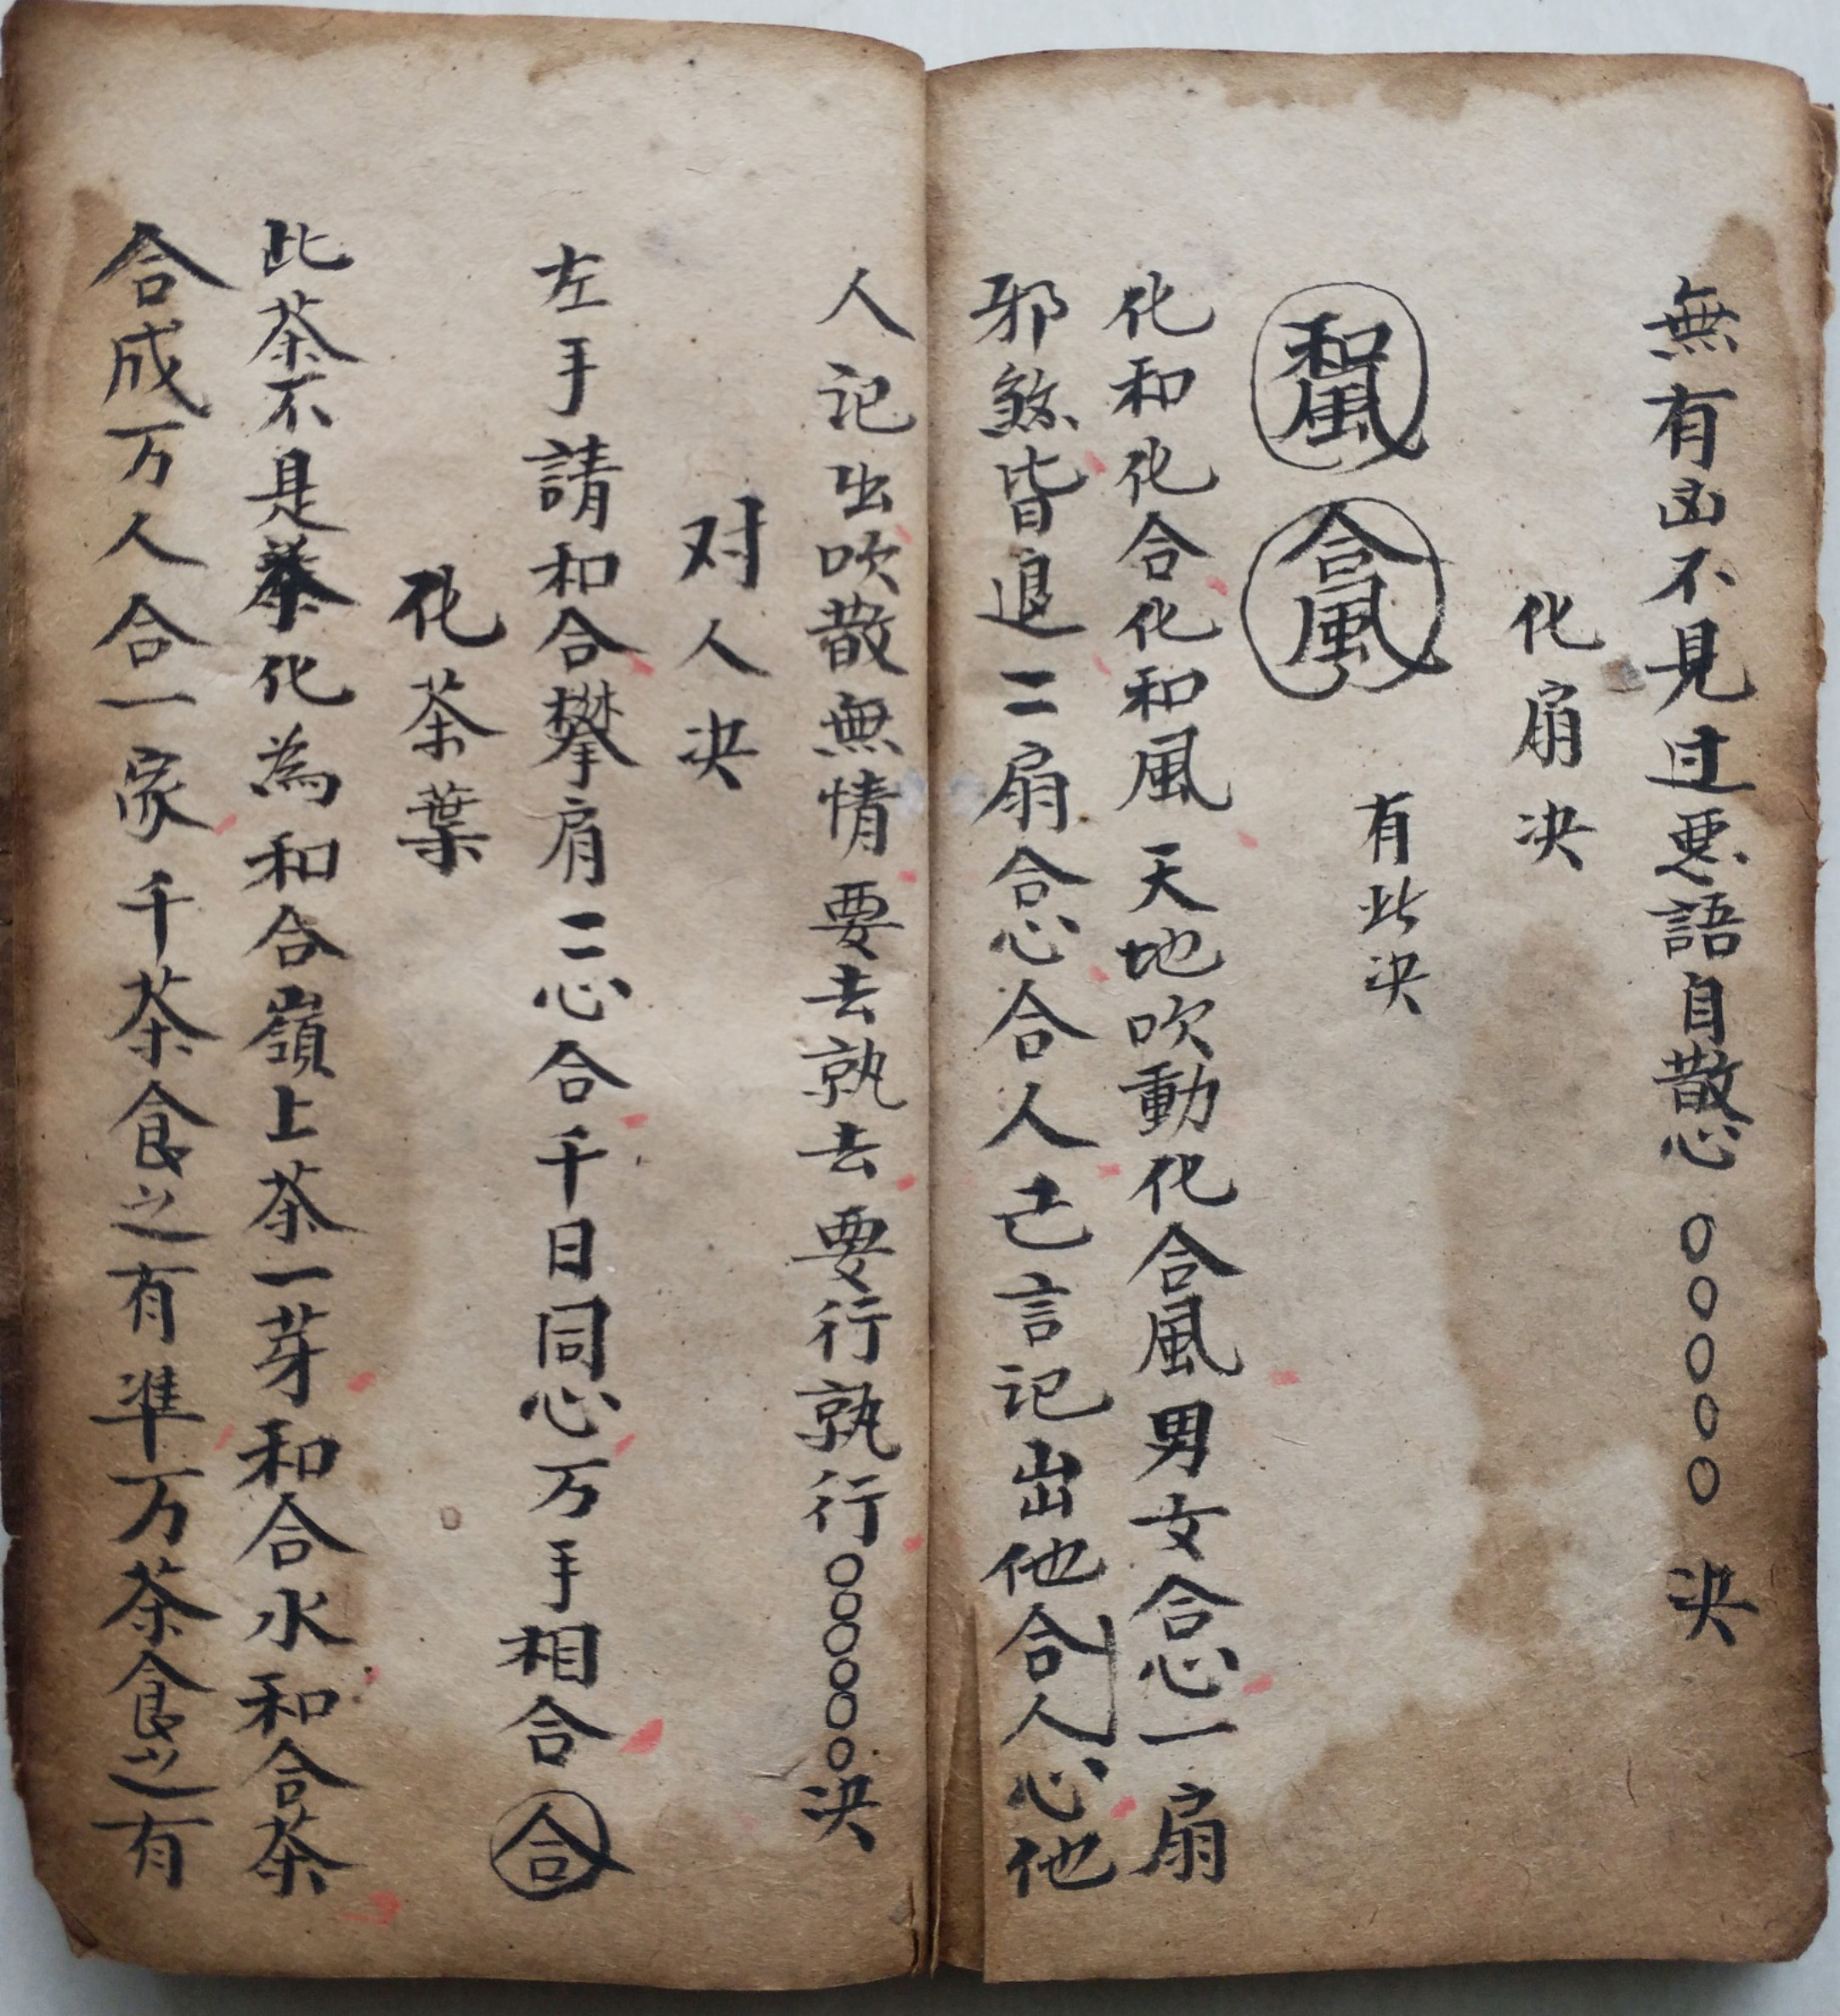 無有凶不見过惡語自散心〇〇〇〇〇决
化扇决
有此决
化和化合化和風天地吹動化合風男女合心一扇
邪煞皆退二扇合心合人己言記出他合人心他
人記出吹散無情要去孰去要行孰行〇〇〇〇〇〇决
对人决
左手請和合攀肩二心合千日同心万手相合合
化茶葉
此茶不是茶化為和合嶺上茶一芽和合水和合茶
合成万人合一家千茶食之有準万茶食之有